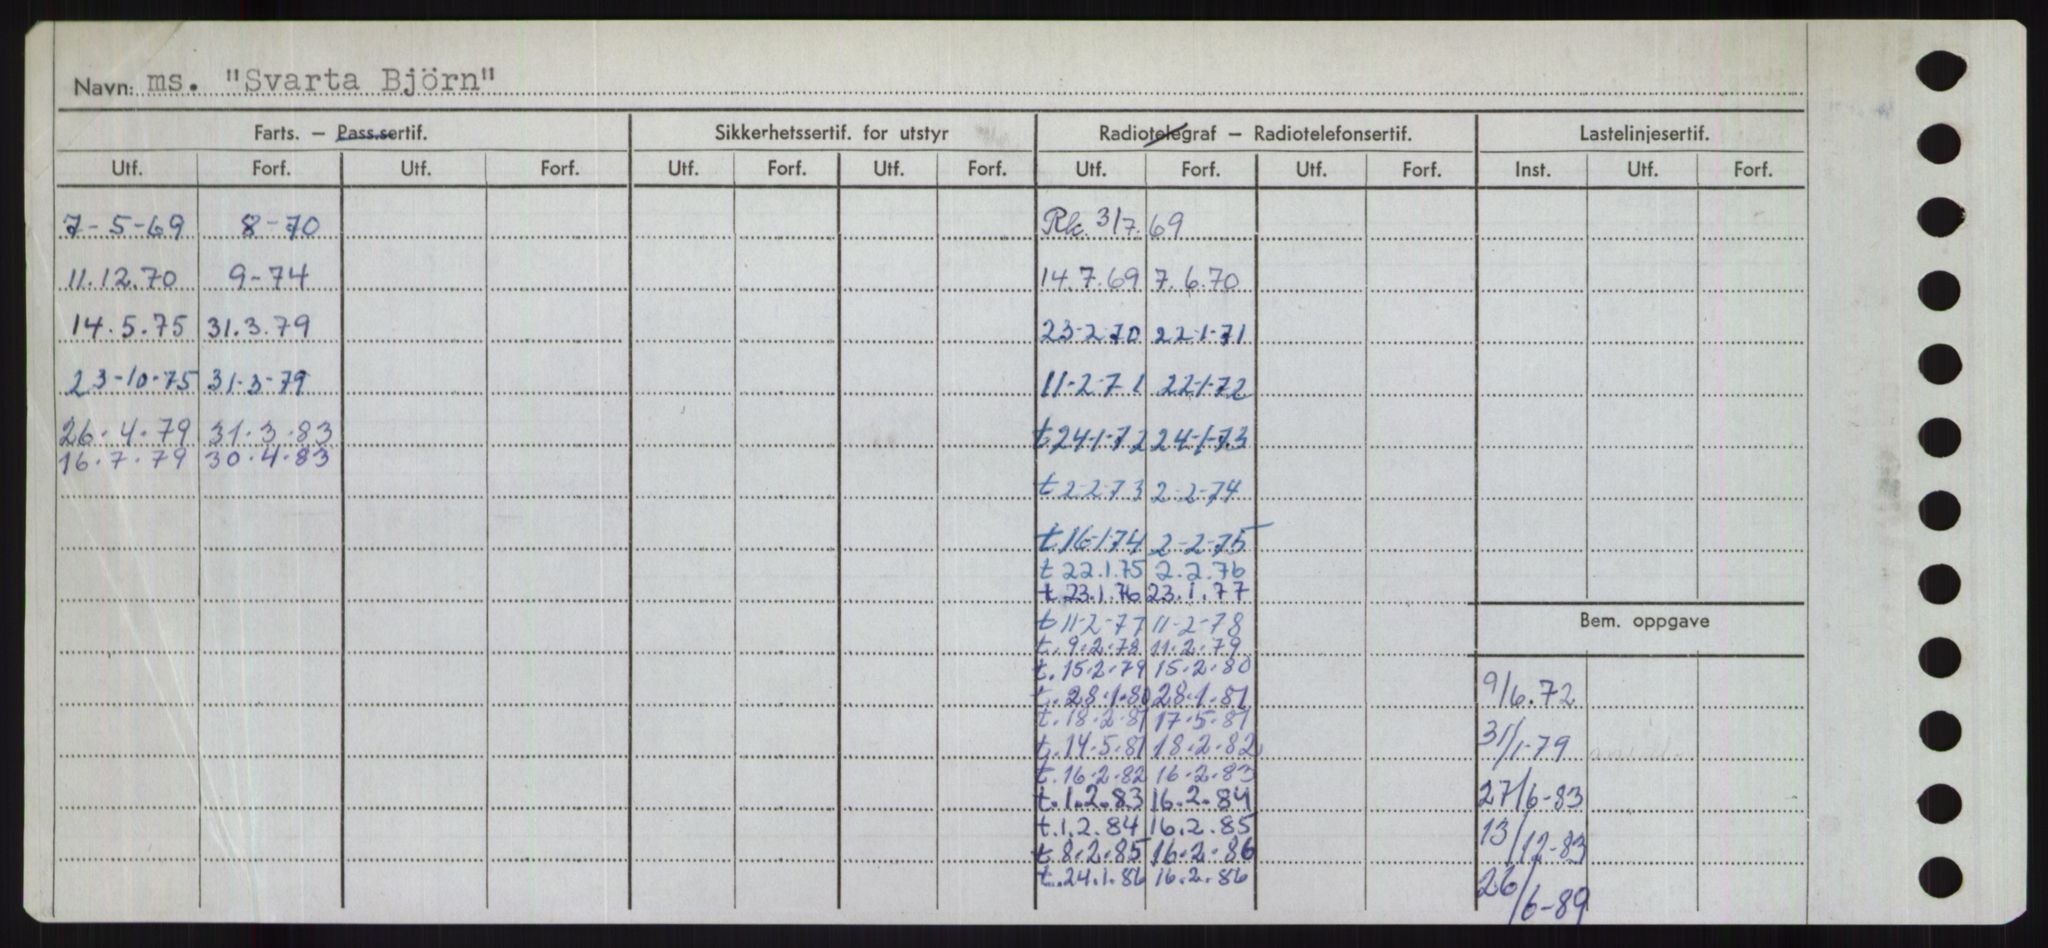 Navn: ms. "Svarta Björn"
Farts. – Pass.sertif. Sikkerhetssertif. for utstyr Radiotelegraf – Radiotelefonsertif. Lastelinjesertif.
Utf. Forf. Utf. Forf. Utf. Forf. Utf. Forf. Utf. Forf. Utf. Forf. Inst. Utf. Forf.
7-5-69 8-70 Rk. 3/7.69
11.12.70 9-74 14.7.69 7.6.70
14.5.75 31.3.79 23-2-70 22-1-71
23-10-75 31-3-79 11-2-71 22-1-72
26.4.79 31.3.83 t.24-1-72 24-1-73
16.7.79 30.4.83
t 2-2-73 2-2-74
t.16-1-74 2-2-75
t 22.1.75 2.2.76
t.23.1.76 23.1.77
t 11-2-77 11-2-78 Bem. oppgave
t. 9.2.78 11.2.79
t. 15.2.79 15.2.80
t. 28.1.80 28.1.81 9/6.72
t. 18.2.81 17.5.81
t. 14.5.81 18.2.82 31/1-79
t. 16.2.82 16.2.83
t. 1.2.83 16.2.84 27/6-83
t. 1.2.84 16.2.85 13/12-83
t. 8.2.85 16.2.86
t. 24.1.86 16.2.86 26/6-89